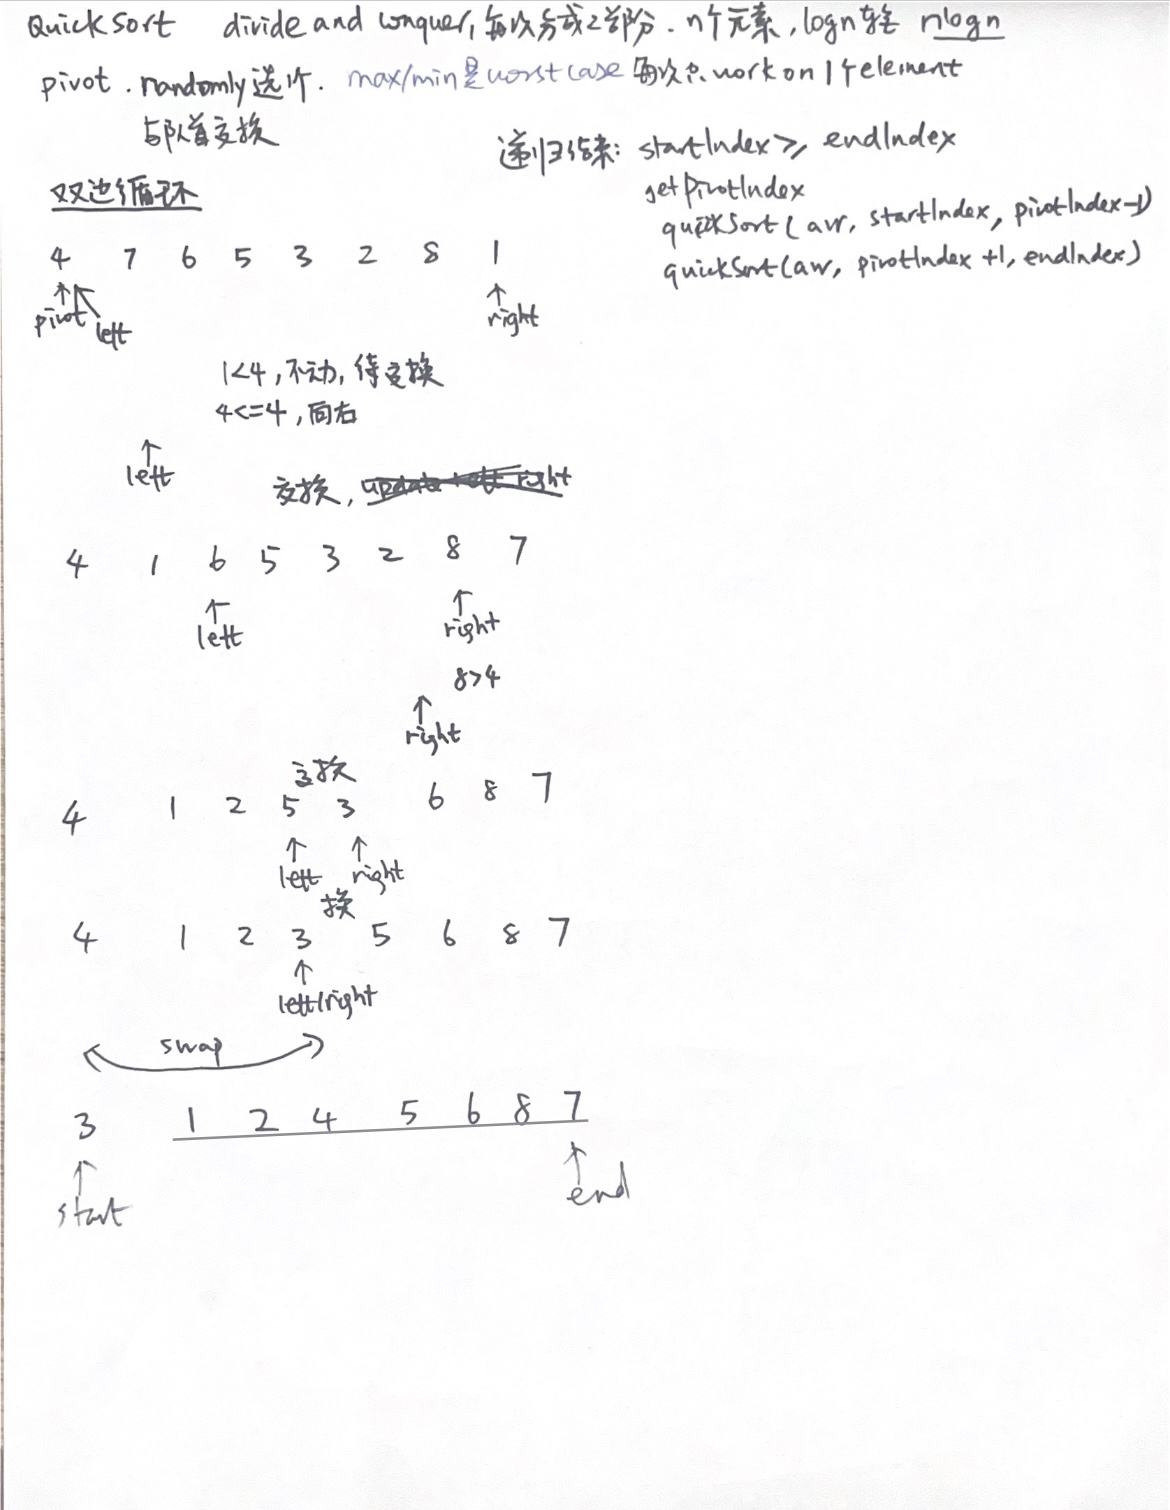 Quick Sort divide and conquer, 每次分成2部分. n个元素, logn轮 nlogn
pivot. randomly选个. max/min是worst case 每次只work on 1个element
与队首交换
递归结束: startIndex ≥ endIndex
getPivotIndex
quickSort(arr, startIndex, pivotIndex-1)
quickSort(arr, pivotIndex +1, endIndex)
双边循环
4 7 6 5 3 2 8 1
↑ ↑ ↑
pivot left right
1<4, 不动, 待交换
4<=4, 向右
↑
left
交换, update left right
4 1 6 5 3 2 8 7
↑ ↑
left right
8>4
↑
right
交换
4 1 2 5 3 6 8 7
↑ ↑
left right
换
4 1 2 3 5 6 8 7
↑
left/right
swap
3 1 2 4 5 6 8 7
↑ ↑
start end